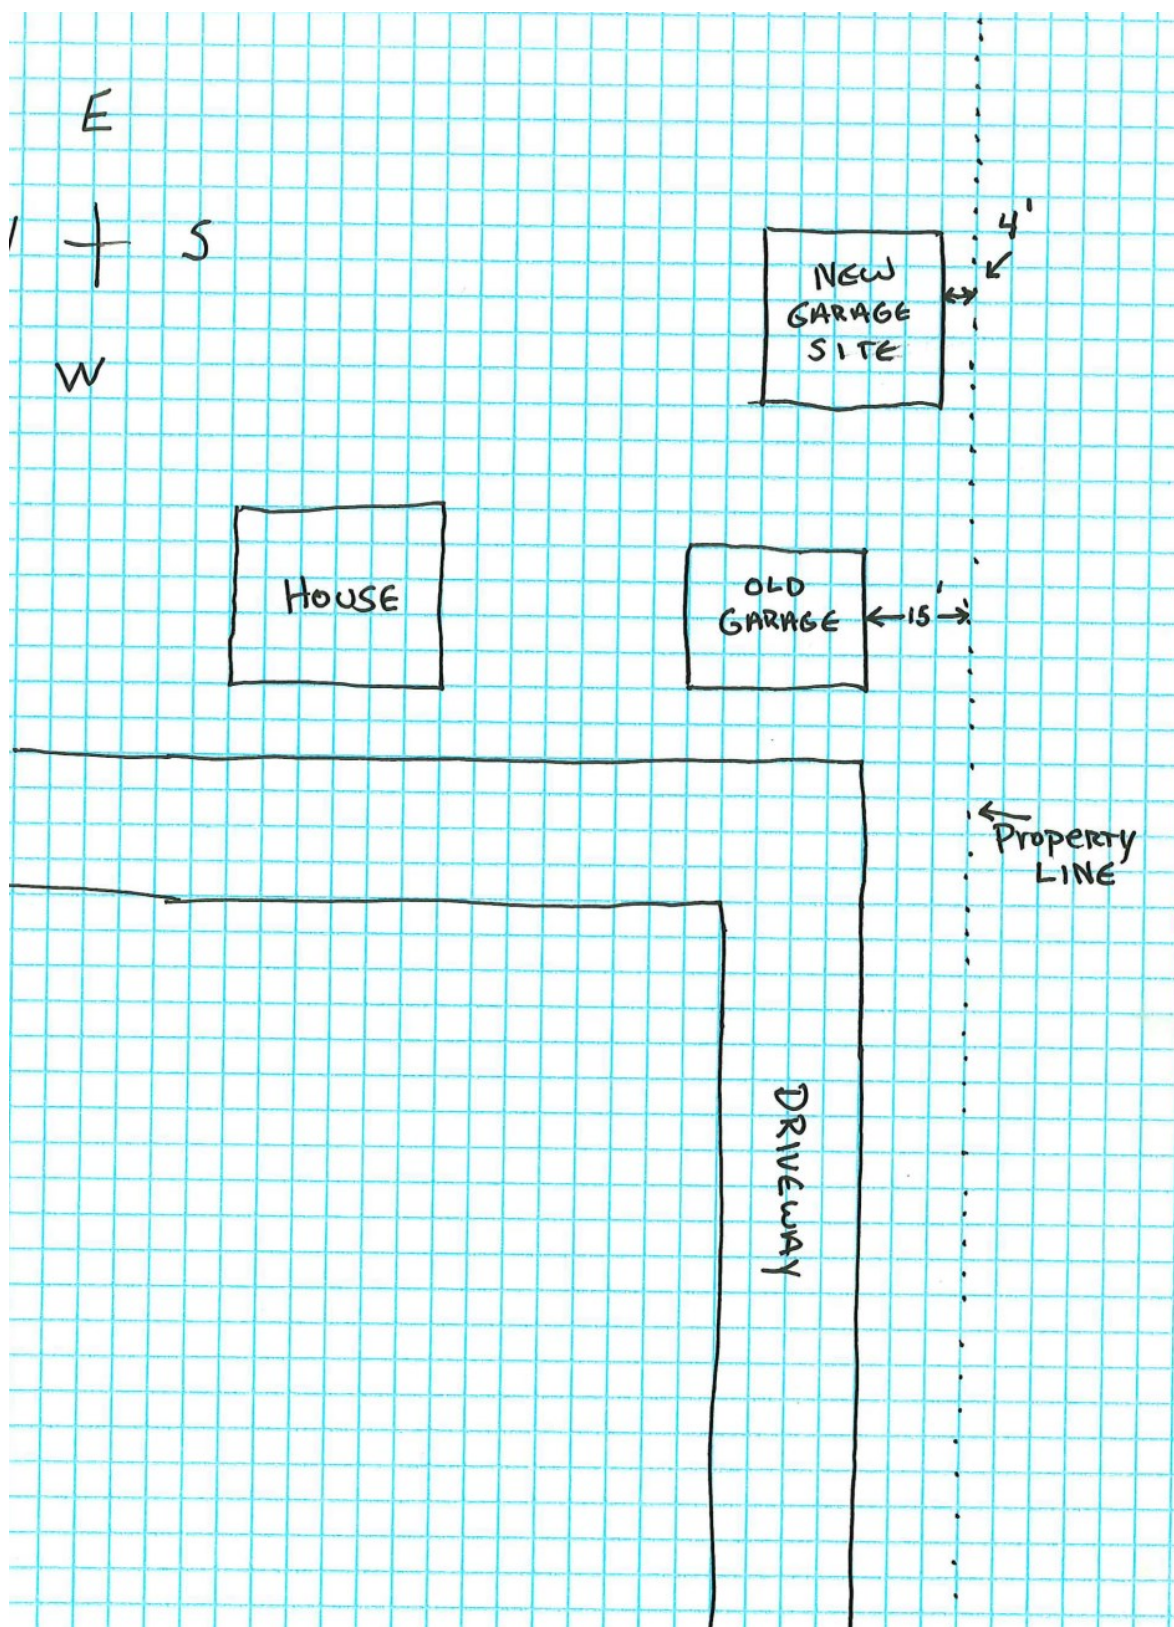 E
S
W
4'
NEW
GARAGE
SITE
HOUSE
OLD
GARAGE
15'
Property
LINE
DRIVEWAY